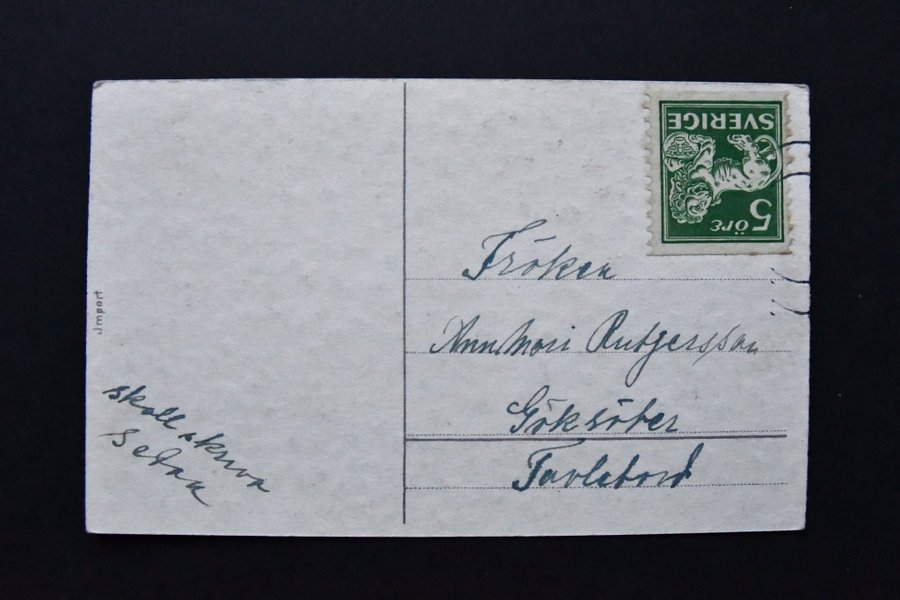 Jmport
skall skriva
Sedan
SVERIGE
5 ÖRE
Fröken
AnnMari Rutgersson
Göksöter
Tavlebord